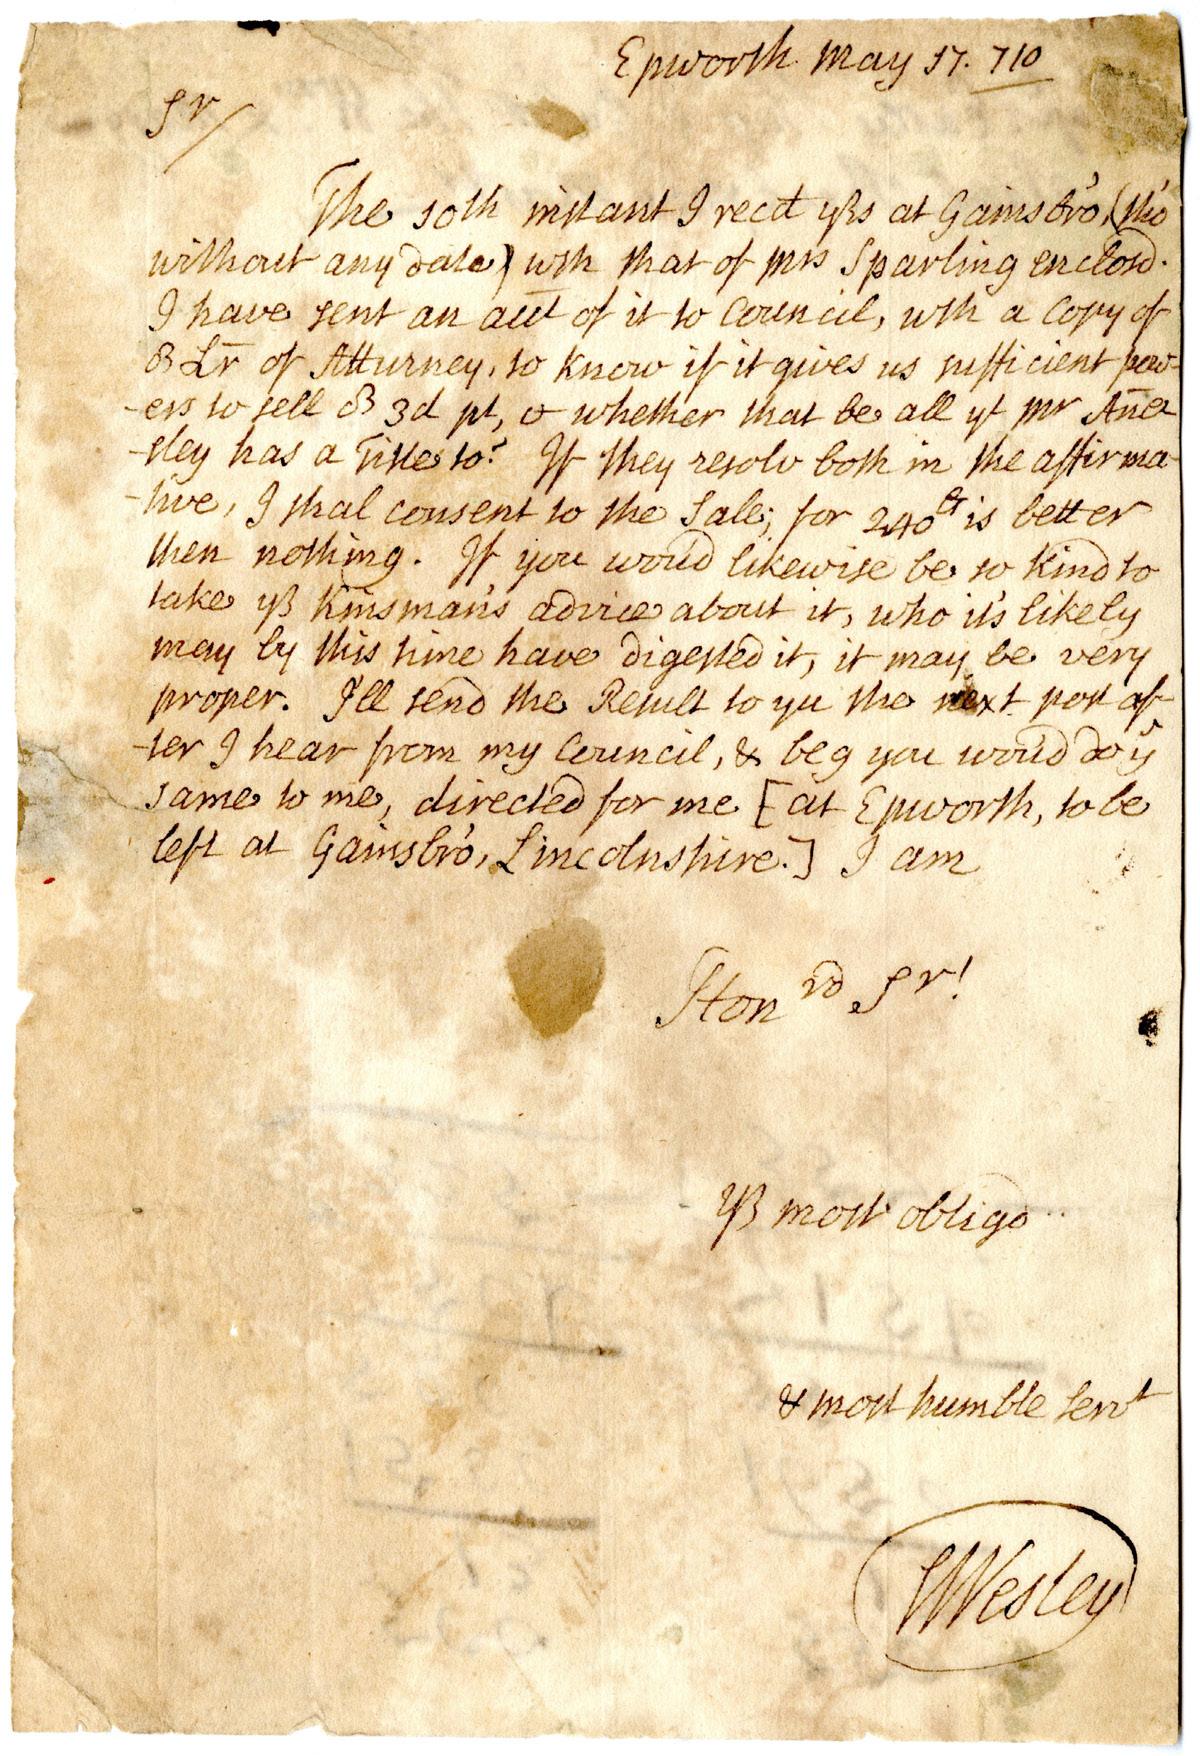 Epworth May 17. 710
Sr/
The 10th instant I recd yrs at Gainsbro', (tho'
without any date) wth that of Mrs Sparling enclosd.
I have sent an acct of it to Council, wth a Copy of
Lr of Atturney, to know if it gives us sufficient pow-
-ers to sell 3d pt, & whether that be all yt Mr Anes-
-sley has a Title to? If they resolv both in the affirma-
-tive, I shal consent to the Sale; for 240 is better
then nothing. If you would likewise be so kind to
take yr Kinsman's advice about it, who it's likely
may by this time have digested it, it may be very
proper. I'll send the Result to yu the next post af-
-ter I hear from my Council, & beg you would do ye
same to me, directed for me [at Epworth, to be
left at Gainsbro', Lincolnshire.] I am
Honrd Sr!
Yr most obligd
& most humble Servt
SWesley